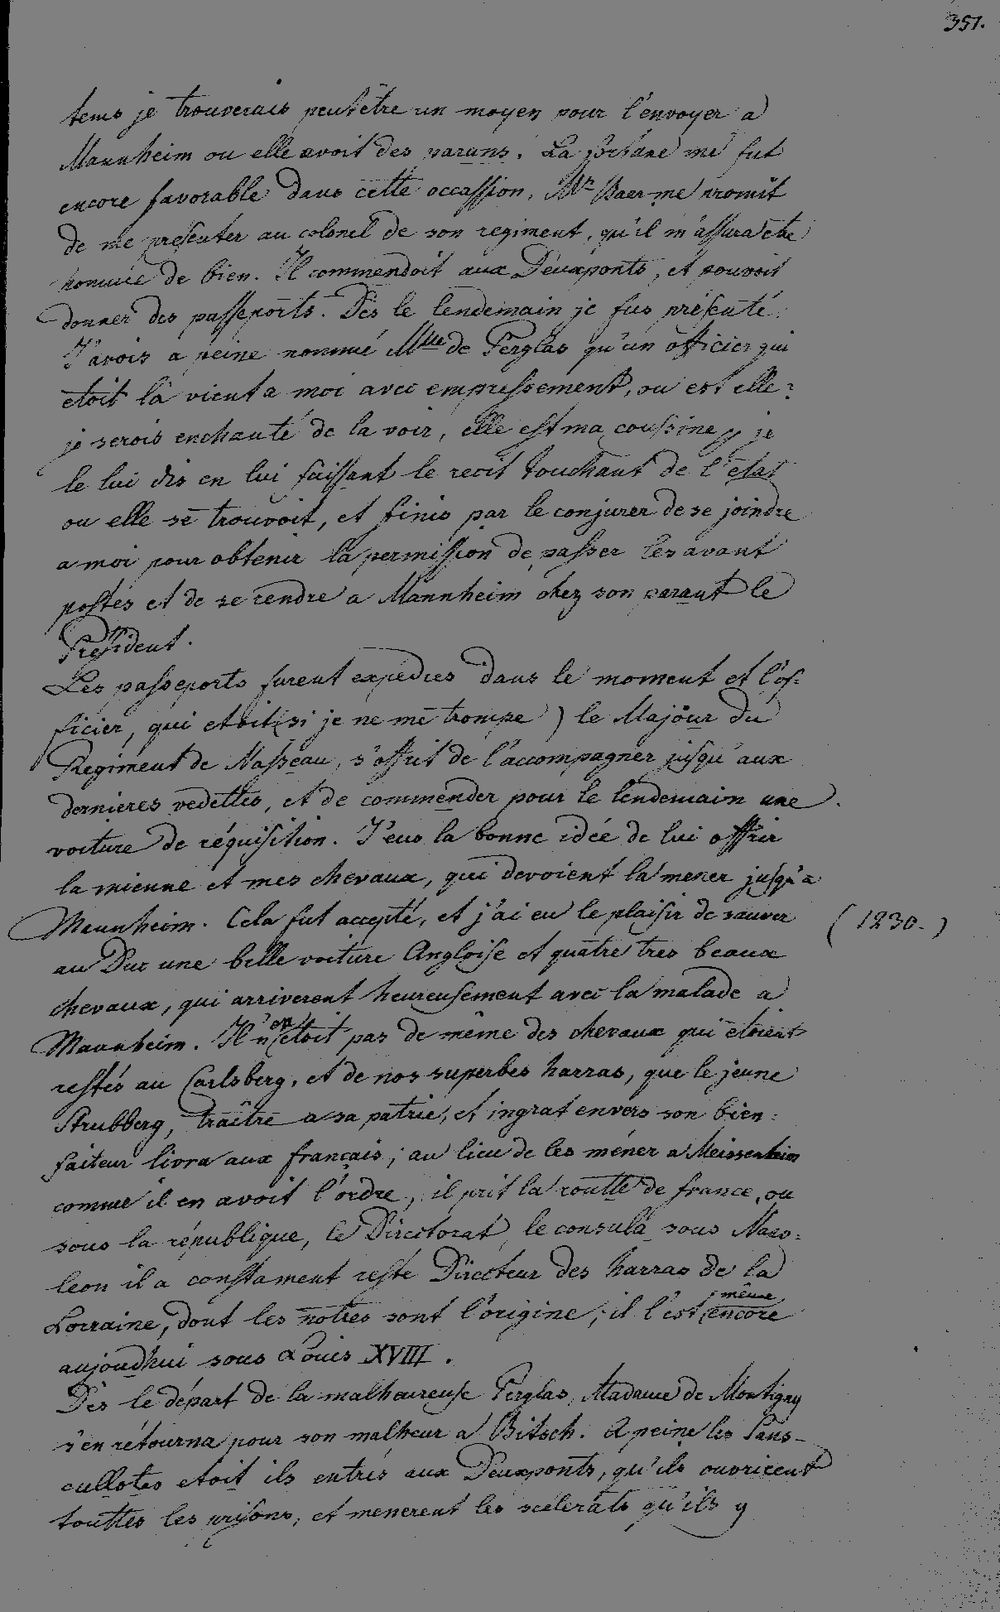 351.
tems je trouverais peutêtre un moyen pour l'envoyer a
Mannheim ou elle avoit des paruns. La fortune me fut
encore favorable dans cette occassion, Mr. Baer me promit
de me presenter au colonel de son regiment, qu'il m'assura etre
homme de bien. Il commendoit aux Deuxponts, et pouvoit
donner des passeports. Dès le lendemain je fus présenté.
J'avois a peine nommé Mlle de Perglas qu'un officier qui
etoit là vient a moi avec empressement, ou est elle?
je serois enchanté de la voir, elle est ma coussine, je
le lui dis en lui faissant le recit touchant de l'etat
ou elle se trouvoit, et finis par le conjurer de se joindre
a moi pour obtenir la permission de passer les avant
postes et de se rendre a Mannheim chez son parant le
Président.
Les passeports furent expedies dans le moment et l'of-
ficier, qui etoit (si je ne me trompe) le Majour du
Regiment de Nasseau, s'offrit de l'accompagner jusqu'aux
dernieres vedettes, et de commender pour le lendemain une
voiture de réquisition. J'eus la bonne idée de lui offrir
la mienne et mes chevaux, qui devoient la mener jusqu'a
Mannheim. Cela fut accepté, et j'ai eu le plaisir de sauver
(1230.)
au Duc une belle voiture Angloise et quatre tres beaux
chevaux, qui arriverent heureusement avec la malade a
Mannheim. Il n'en etoit pas de même des chevaux qui etoient
restés au Carlsberg, et de nos superbes harras, que le jeune
Strubberg, traître a sa patrie, et ingrat envers son bien=
faiteur livra aux français; au lieu de les méner a Meissenheim
comme il en avoit l'ordre, il prit la routte de france, ou
sous la république, le Directorat, le consula sous Napo=
leon il a constament resté Directeur des harras de la
Lorraine, dont les notres sont l'origine; il l'est même encore
aujoudhui sous Louis XVIII.
Dès le départ de la malheureuse Perglas, Madame de Montigny
s'en rétourna pour son malheur a Bitsch. A peine les Sans-
cullotes etoit ils entrés aux Deuxponts, qu'ils ouvrirent
touttes les prisons, et menerent les scélerats qu'ils y